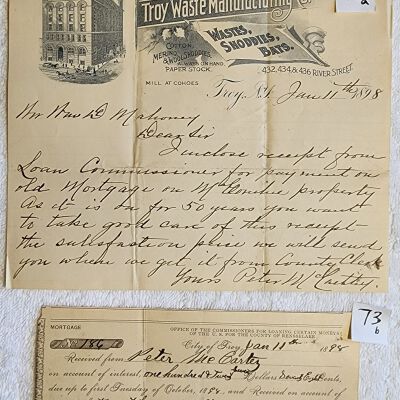 a
Troy Waste Manufacturing
WASTES,
SHODDIES,
BATS.
COTTON,
MERINO
& WOOL SHODDIES
ALWAYS ON HAND.
PAPER STOCK.
MILL AT COHOES
432, 434, & 436 RIVER STREET.
Troy, N.Y. Jan 11th 1898
Mr D Mahoney
Dear Sir
I inclose receipt from
Loan Commissioner for payment on
old Mortgage on property
As it is in for 50 years you want
to take good care of this receipt
the satisfaction we will send
you when we get it from County Clerk
Yours Peter McCarthy
73
b
MORTGAGE
OFFICE OF THE COMMISSIONERS FOR LOANING CERTAIN MONEYS
OF THE U. S. FOR THE COUNTY OF RENSSELAER.
No. 186 City of Troy, Jan 11th 1898
Received from Peter McCarthy
on account of interest, one hundred & Dollars Cents,
due up to first Tuesday of October, 1898, and Received on account of